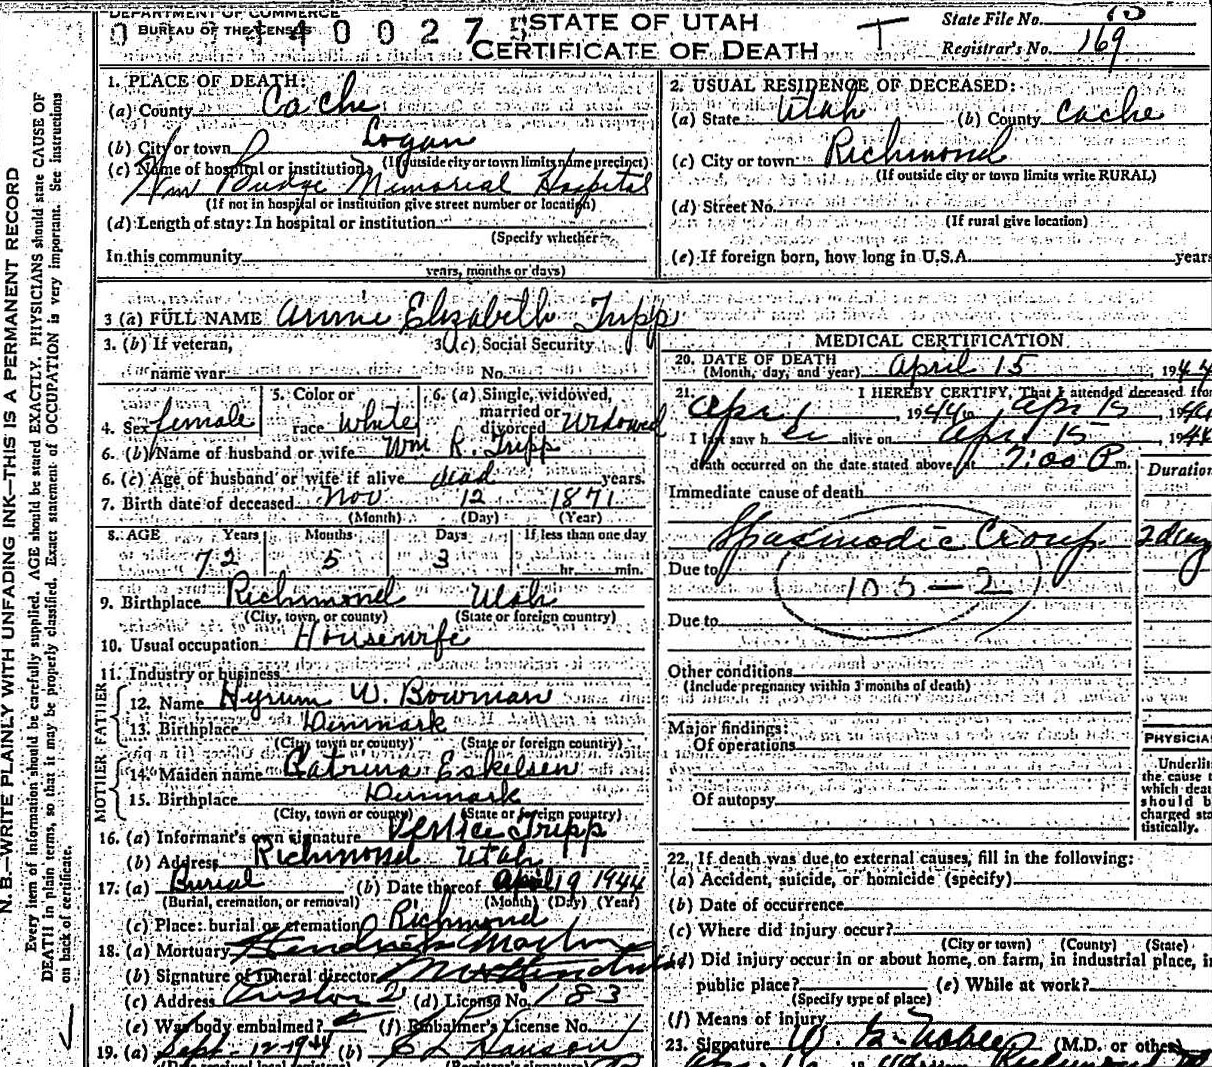 DEPARTMENT OF COMMERCE
BUREAU OF THE CENSUS
STATE OF UTAH
CERTIFICATE OF DEATH
State File No. 15
Registrar's No. 169
N. B.—WRITE PLAINLY WITH UNFADING INK—THIS IS A PERMANENT RECORD
Every item of information should be carefully supplied. AGE should be stated EXACTLY. PHYSICIANS should state CAUSE OF
DEATH in plain terms, so that it may be properly classified. Exact statement of OCCUPATION is very important. See instructions
on back of certificate.
1. PLACE OF DEATH:
(a) County Cache
(b) City or town Logan
(If outside city or town limits name precinct)
(c) Name of hospital or institution
Wm Budge Memorial Hospital
(If not in hospital or institution give street number or location)
(d) Length of stay: In hospital or institution
(Specify whether
In this community
years, months or days)
2. USUAL RESIDENCE OF DECEASED:
(a) State Utah (b) County Cache
(c) City or town Richmond
(If outside city or town limits write RURAL)
(d) Street No.
(If rural give location)
(e) If foreign born, how long in U.S.A. years
3 (a) FULL NAME Annie Elizabeth Tripp
3. (b) If veteran, name war
3. (c) Social Security No.
4. Sex female
5. Color or race White
6. (a) Single, widowed, married or divorced Widowed
6. (b) Name of husband or wife Wm R. Tripp
6. (c) Age of husband or wife if alive dead years.
7. Birth date of deceased Nov 12 1871
(Month) (Day) (Year)
8. AGE Years Months Days If less than one day
72 5 3 hr. min.
9. Birthplace Richmond Utah
(City, town, or county) (State or foreign country)
10. Usual occupation Housewife
11. Industry or business
FATHER
12. Name Hyrum W. Bowman
13. Birthplace Denmark
(City town or county) (State or foreign country)
MOTHER
14. Maiden name Catrina Eskelsen
15. Birthplace Denmark
(City, town or county) (State or foreign country)
16. (a) Informant's own signature Vernice Tripp
(b) Address Richmond Utah
17. (a) Burial (b) Date thereof April 19 1944
(Burial, cremation, or removal) (Month) (Day) (Year)
(c) Place: burial or cremation Richmond
18. (a) Mortuary
(b) Signature of funeral director
(c) Address Preston (d) License No. 183
(e) Was body embalmed? (f) Embalmer's License No.
19. (a) Sept-12-1944 (b) C L Hanson
MEDICAL CERTIFICATION
20. DATE OF DEATH
(Month, day, and year) April 15, 1944
21. I HEREBY CERTIFY, That I attended deceased from
Apr 1, 1944 to Apr 15, 1944
I last saw her alive on Apr. 15, 1944
death occurred on the date stated above at 7:00 P m.
Duration
Immediate cause of death
Spasmodic Croup 2 days
Due to
105-2
Due to
Other conditions
(Include pregnancy within 3 months of death)
Major findings:
Of operations
Of autopsy
PHYSICIA
Underli
the cause t
which deat
should b
charged sta
tistically.
22. If death was due to external causes, fill in the following:
(a) Accident, suicide, or homicide (specify)
(b) Date of occurrence
(c) Where did injury occur?
(City or town) (County) (State)
(d) Did injury occur in or about home, on farm, in industrial place, in
public place? (e) While at work?
(Specify type of place)
(f) Means of injury
23. Signature (M.D. or other)